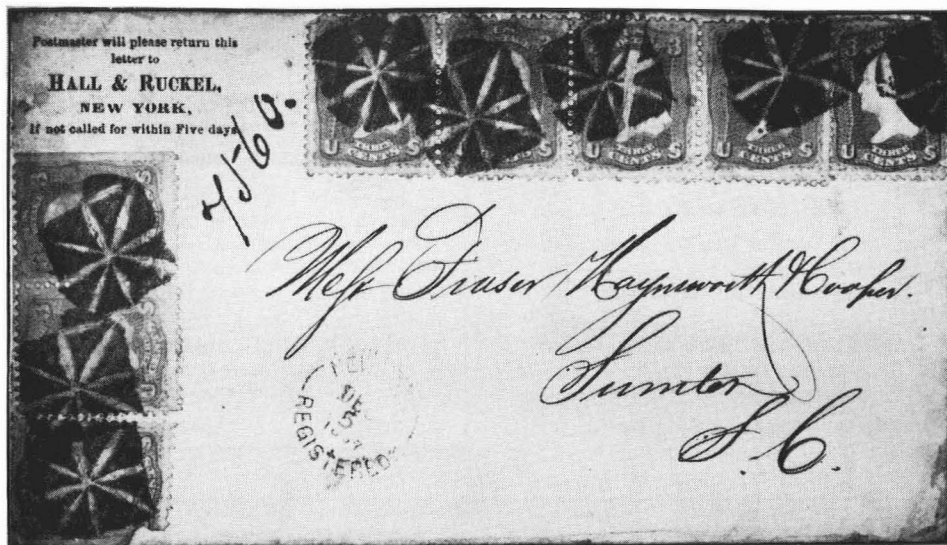 Postmaster will please return this
letter to
HALL & RUCKEL,
NEW YORK,
If not called for within Five days
7560.
THREE
U CENTS S
U S
THREE
U CENTS S
THREE
U CENTS S
3
THREE
U CENTS S
Mess Fraser Haynsworth & Cooper.
Sumter
S. C.
DEC
5
REGISTERED